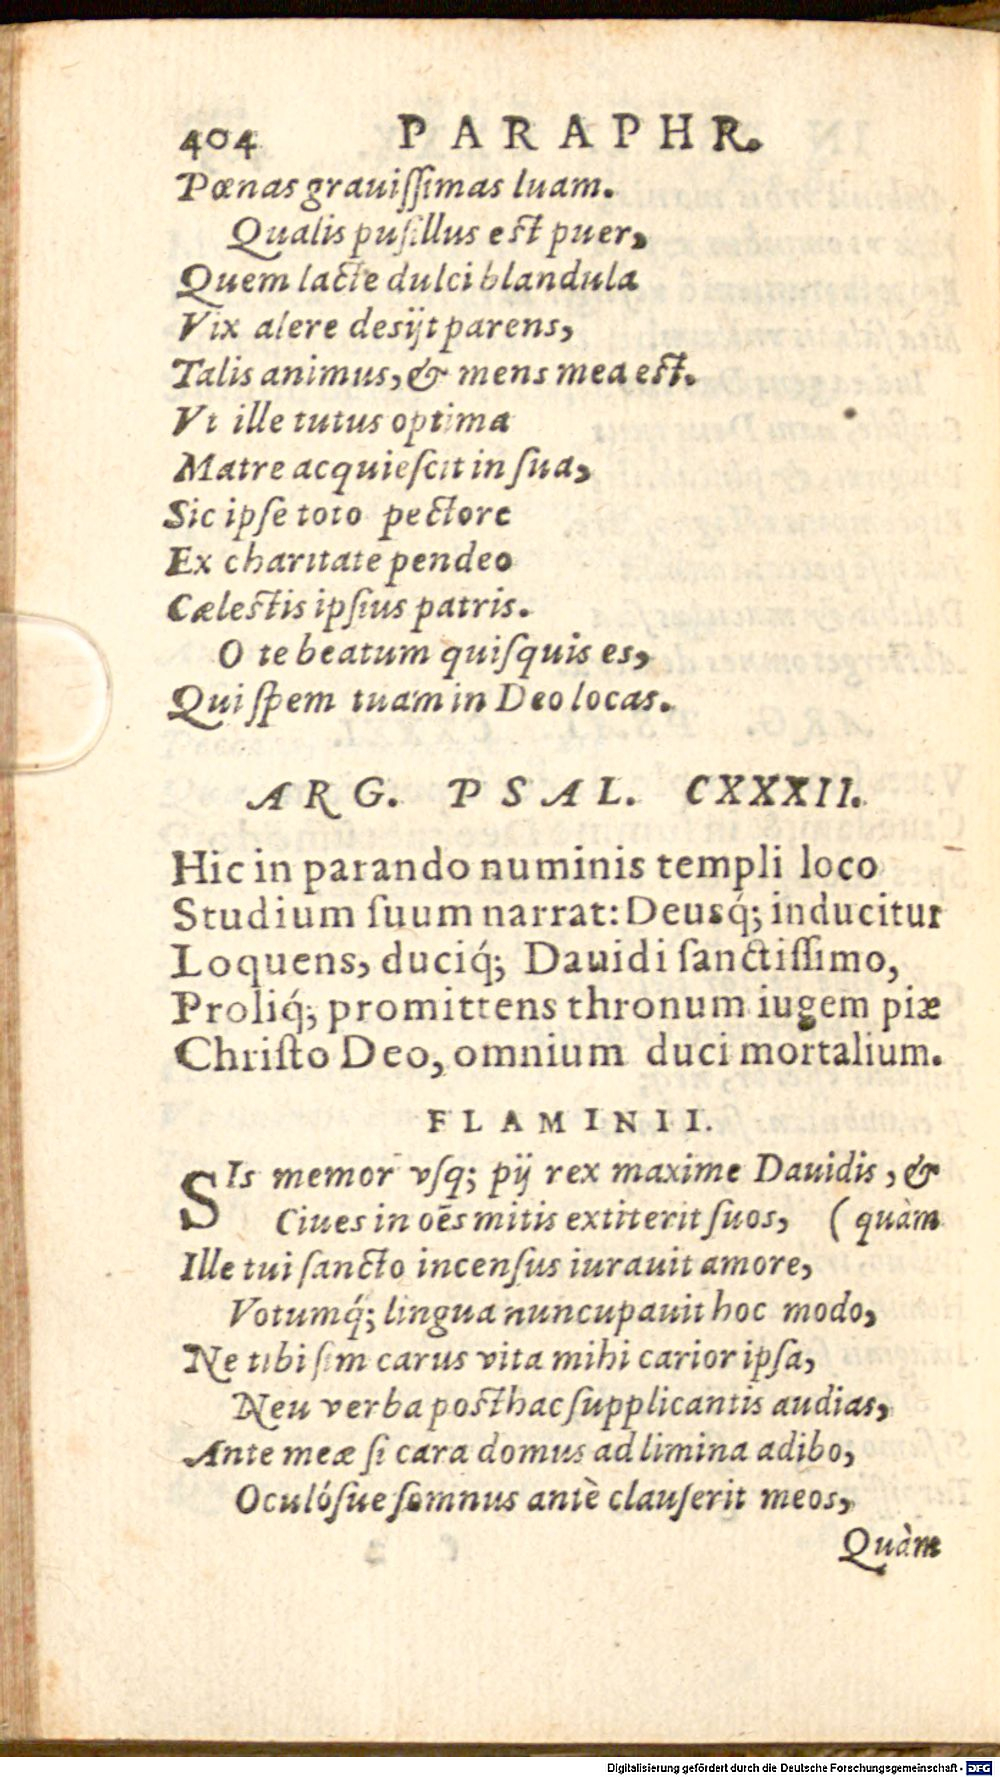 404 PARAPHR.
Pœnas grauiſſimas luam.
Qualis puſillus est puer,
Quem lacte dulci blandula
Vix alere desijt parens,
Talis animus, & mens mea est.
Vt ille tutus optima
Matre acquieſcit in ſua,
Sic ipſe toto pectore
Ex charitate pendeo
Cælestis ipſius patris.
O te beatum quiſquis es,
Qui ſpem tuam in Deo locas.
ARG. PSAL. CXXXII.
Hic in parando numinis templi loco
Studium ſuum narrat: Deusq́; inducitur
Loquens, duciq́; Dauidi ſanctiſſimo,
Proliq́; promittens thronum iugem piæ
Chriſto Deo, omnium duci mortalium.
FLAMINII.
SIs memor vſq; pij rex maxime Dauidis, &
Ciues in oēs mitis extiterit ſuos, (quàm
Ille tui ſancto incenſus iurauit amore,
Votumq́; lingua nuncupauit hoc modo,
Ne tibi ſim carus vita mihi carior ipſa,
Neu verba posthac ſupplicantis audias,
Ante meæ ſi cara domus ad limina adibo,
Oculósue ſomnus antè clauſerit meos,
Quàm
Digitalisierung gefördert durch die Deutsche Forschungsgemeinschaft - DFG